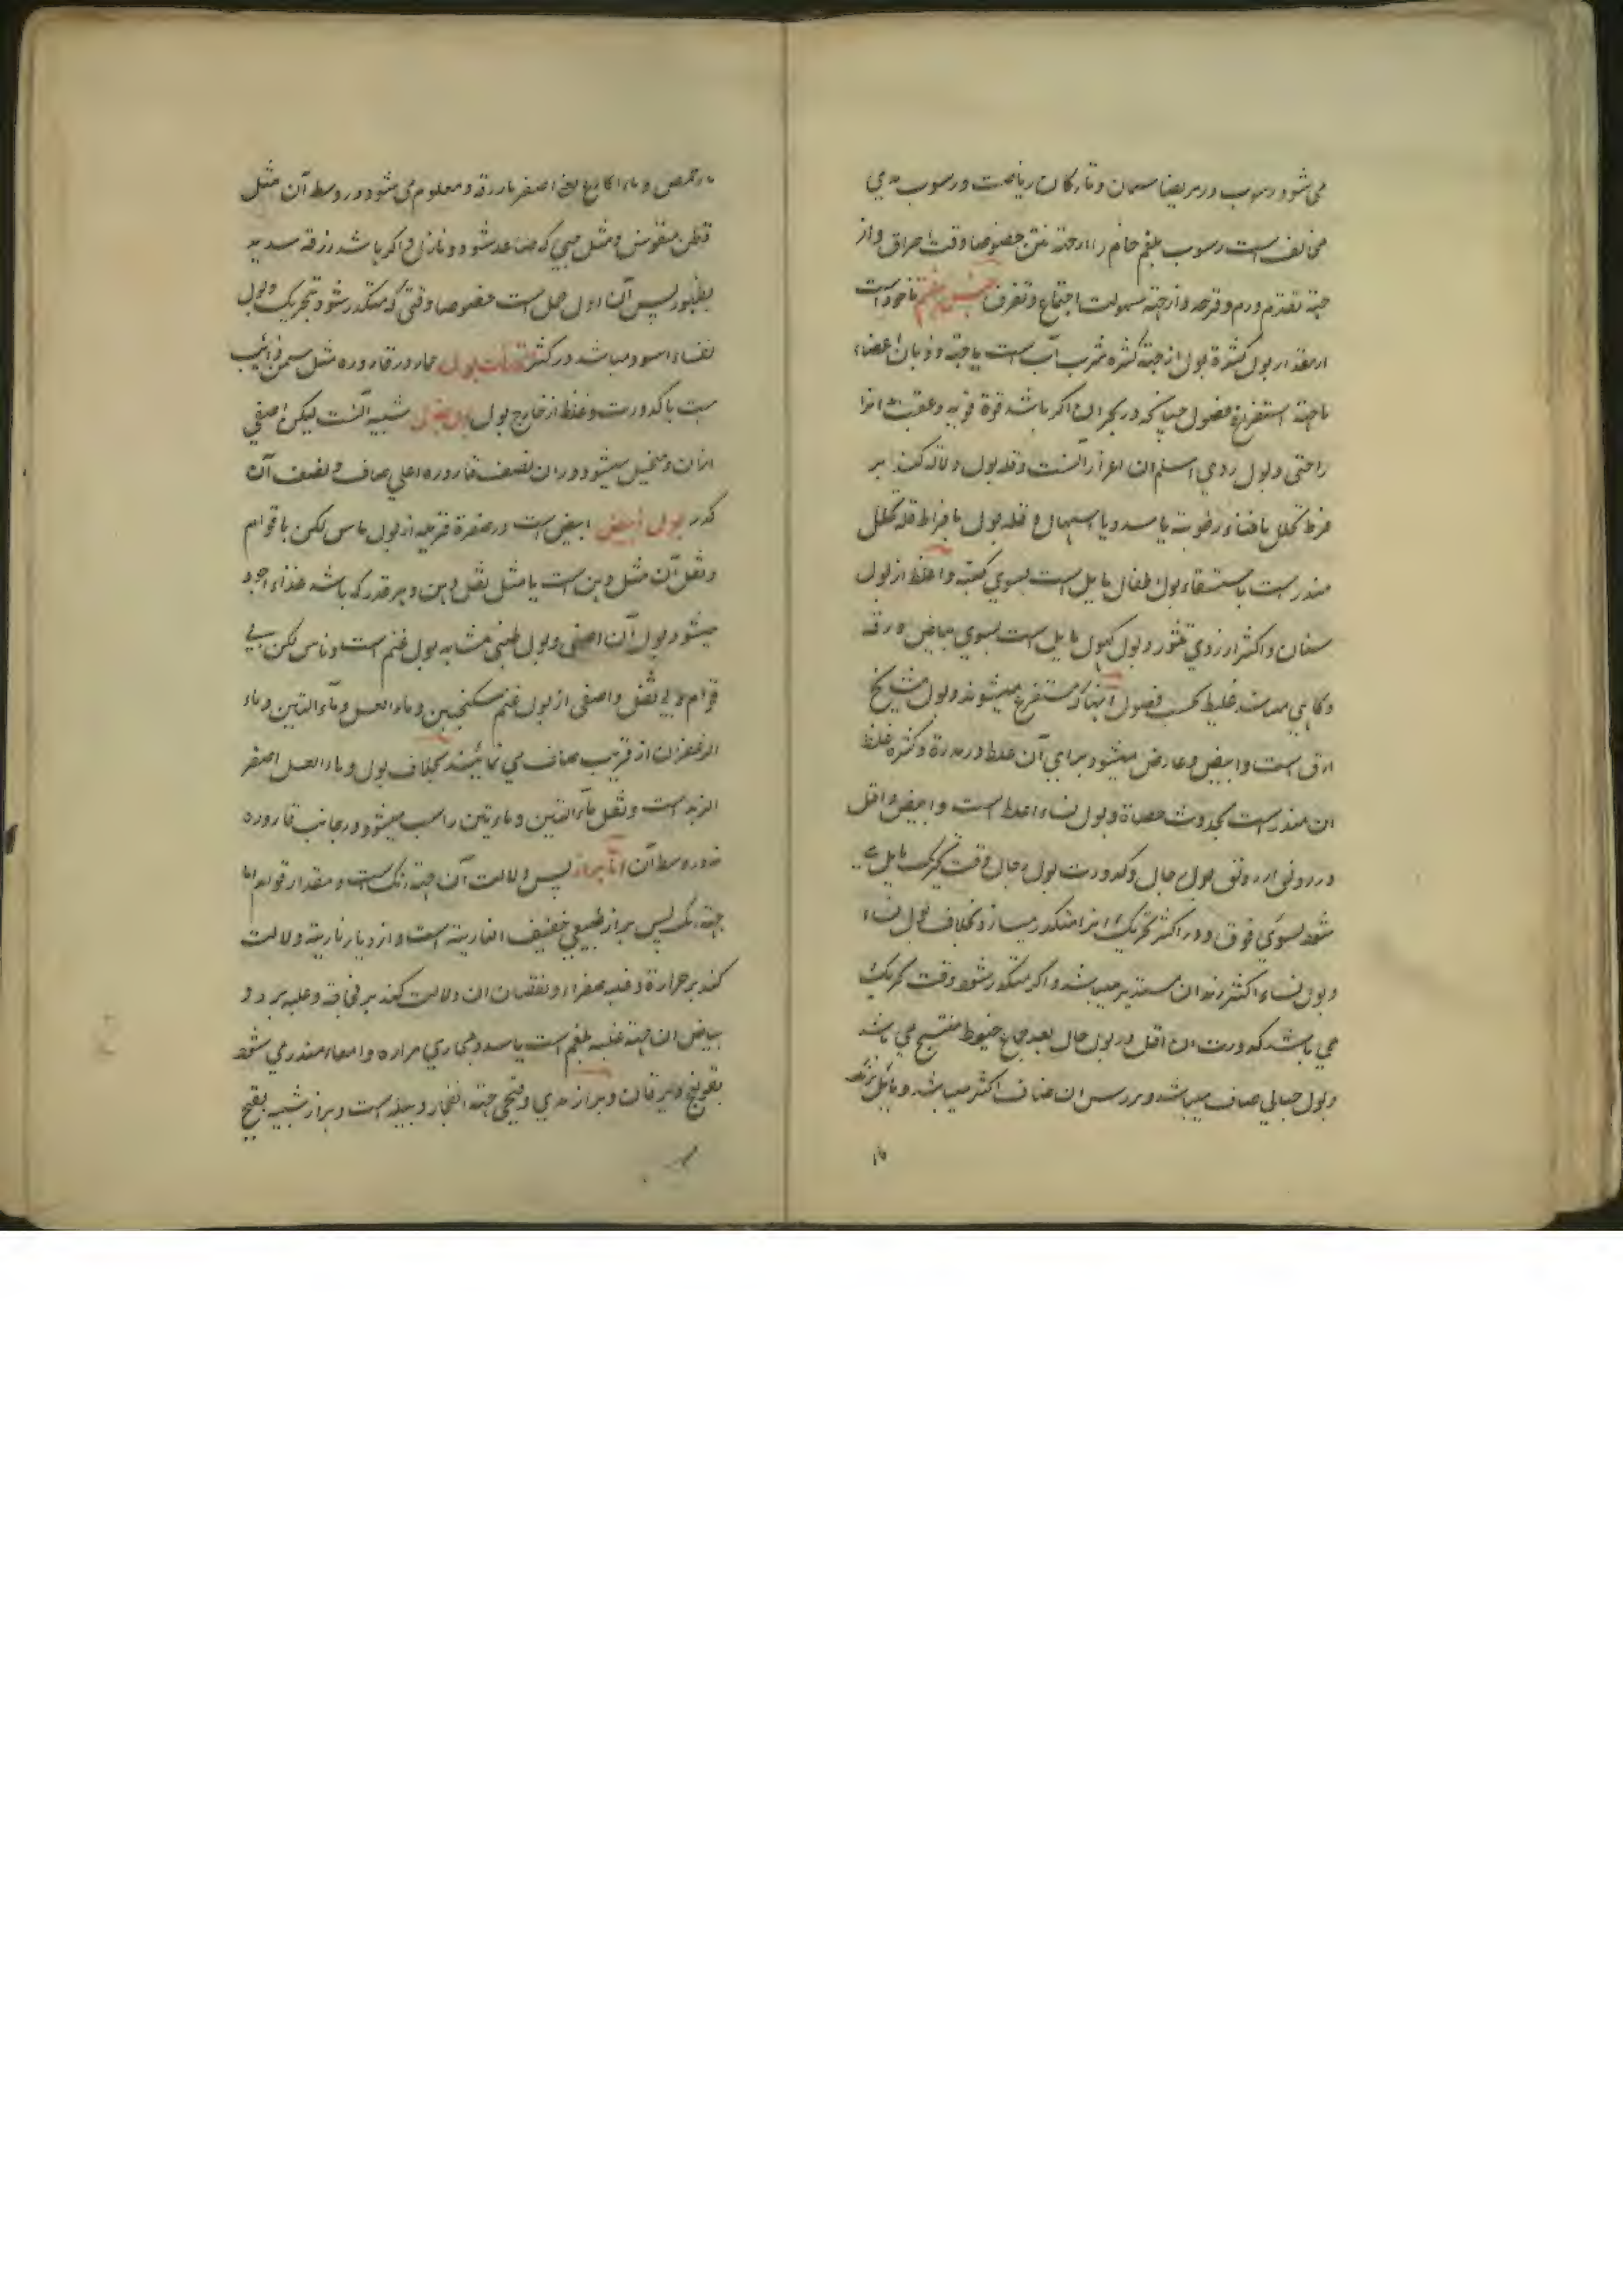 می شود رسوب در مریضا سمان و تارکان ریاضت و رسوب مدی
مخالف است رسوب بلغم خام را از جهة نتن خصوصا وقت احراق و از
جهة تقدم ورم و قرحه و از جهة سهولت اجتماع و تفرق جنس هفتم ماخوذ است
از مقدار بول کثرة بول از جهة کثرة شرب آب است یا جهة ذوبان اعضاء
یا جهة استفراغ فضول چنانکه در بحران اگر باشد قوة قویه و عقب
راحتی و بول ردی اسلم ان اغزر آنست و قلة بول دلالة کند بر
فرط تحلل یا فناء رطوبة یا سدد یا اسهال و قلة بول با فراط قلة تحلل
منذر است باستسقاء بول اطفال مایل است بسوی و اغلظ از بول
و اکثر از روی و بول کهول مایل است بسوی بیاض و رقة
و گاهی غلیظ بحسب فضول انها که مستفرغ میشوند و بول مشایخ
ارق است و ابیض و عارض میشود برای آن غلظ در ندرة و کثرة غلظ
ان منذر است بحدوث حصاة و بول نساء اغلظ است و ابیض و اقل
در رونق از رونق بول رجال و کدورت بول رجال وقت تحریک مایل می
شود بسوی فوق و در اکثر تحریک متکدر میسازد بخلاف بول نساء
و بول نساء اکثر زبد ان مستدیر میباشد و اگر متکدر شود وقت تحریک
می باشد کدورت ان اقل در بول رجال بعد جماع خیوط منتسج می باشد
و بول حبالی صاف میباشد و بر راس ان ضباب اکثر میباشد و مایل بزرقة
ماء حمص و ماء اکارع یعنی اصفر با زرقه و معلوم می شود در وسط آن مثل
قطن منقوش و مثل حبی که صاعد شود و نازل و اگر باشد زرقه شدید
بظهور پس آن اول حمل است خصوصا وقتی که متکدر شود بتحریک و بول
نفساء اسود میباشد در اکثر بول حمار در قاروره مثل سمن ذائب
است با کدورت و غلظ از خارج بول شبیه آنست لیکن اصفی
ازان و متخیل میشود دران نصف قاروره اعلی صاف و نصف آن
کدر بول ابیض است در صفرة قریبه از بول ناس لکن با قوام
و ثفل آن مثل دهن است یا مثل ثفل دهن و هر قدر که باشد غذاء اجود
میشود بول آن اصفی و بول ظبی مشابه بول غنم است و ناس لکن بی
قوام و بی ثفل و اصفی از بول غنم سکنجبین و ماء العسل و ماء التین و ماء
الزعفران از قریب صاف می نمایند بخلاف بول و ماء العسل اصفر
الزبد است و ثفل ماء التین و مانند تین راسب میشود در جانب قاروره
نه در وسط آن اما براز پس دلالت آن جهة رنگ است و مقدار قوام اما
جهة رنگ پس براز طبیعی خفیف الناریة است و ازدیاد ناریة دلالت
کند بر حرارة و غلبه صفراء و نقصان ان دلالت کند بر فجاجة و غلبه برد و
بیاض ان جهة غلبه بلغم است یا سدد مجاری مراره و امعاء منذر می شود
بقولنج و یرقان و براز مدی و قیحی جهة انفجار دبیله است و براز شبیه بقیح